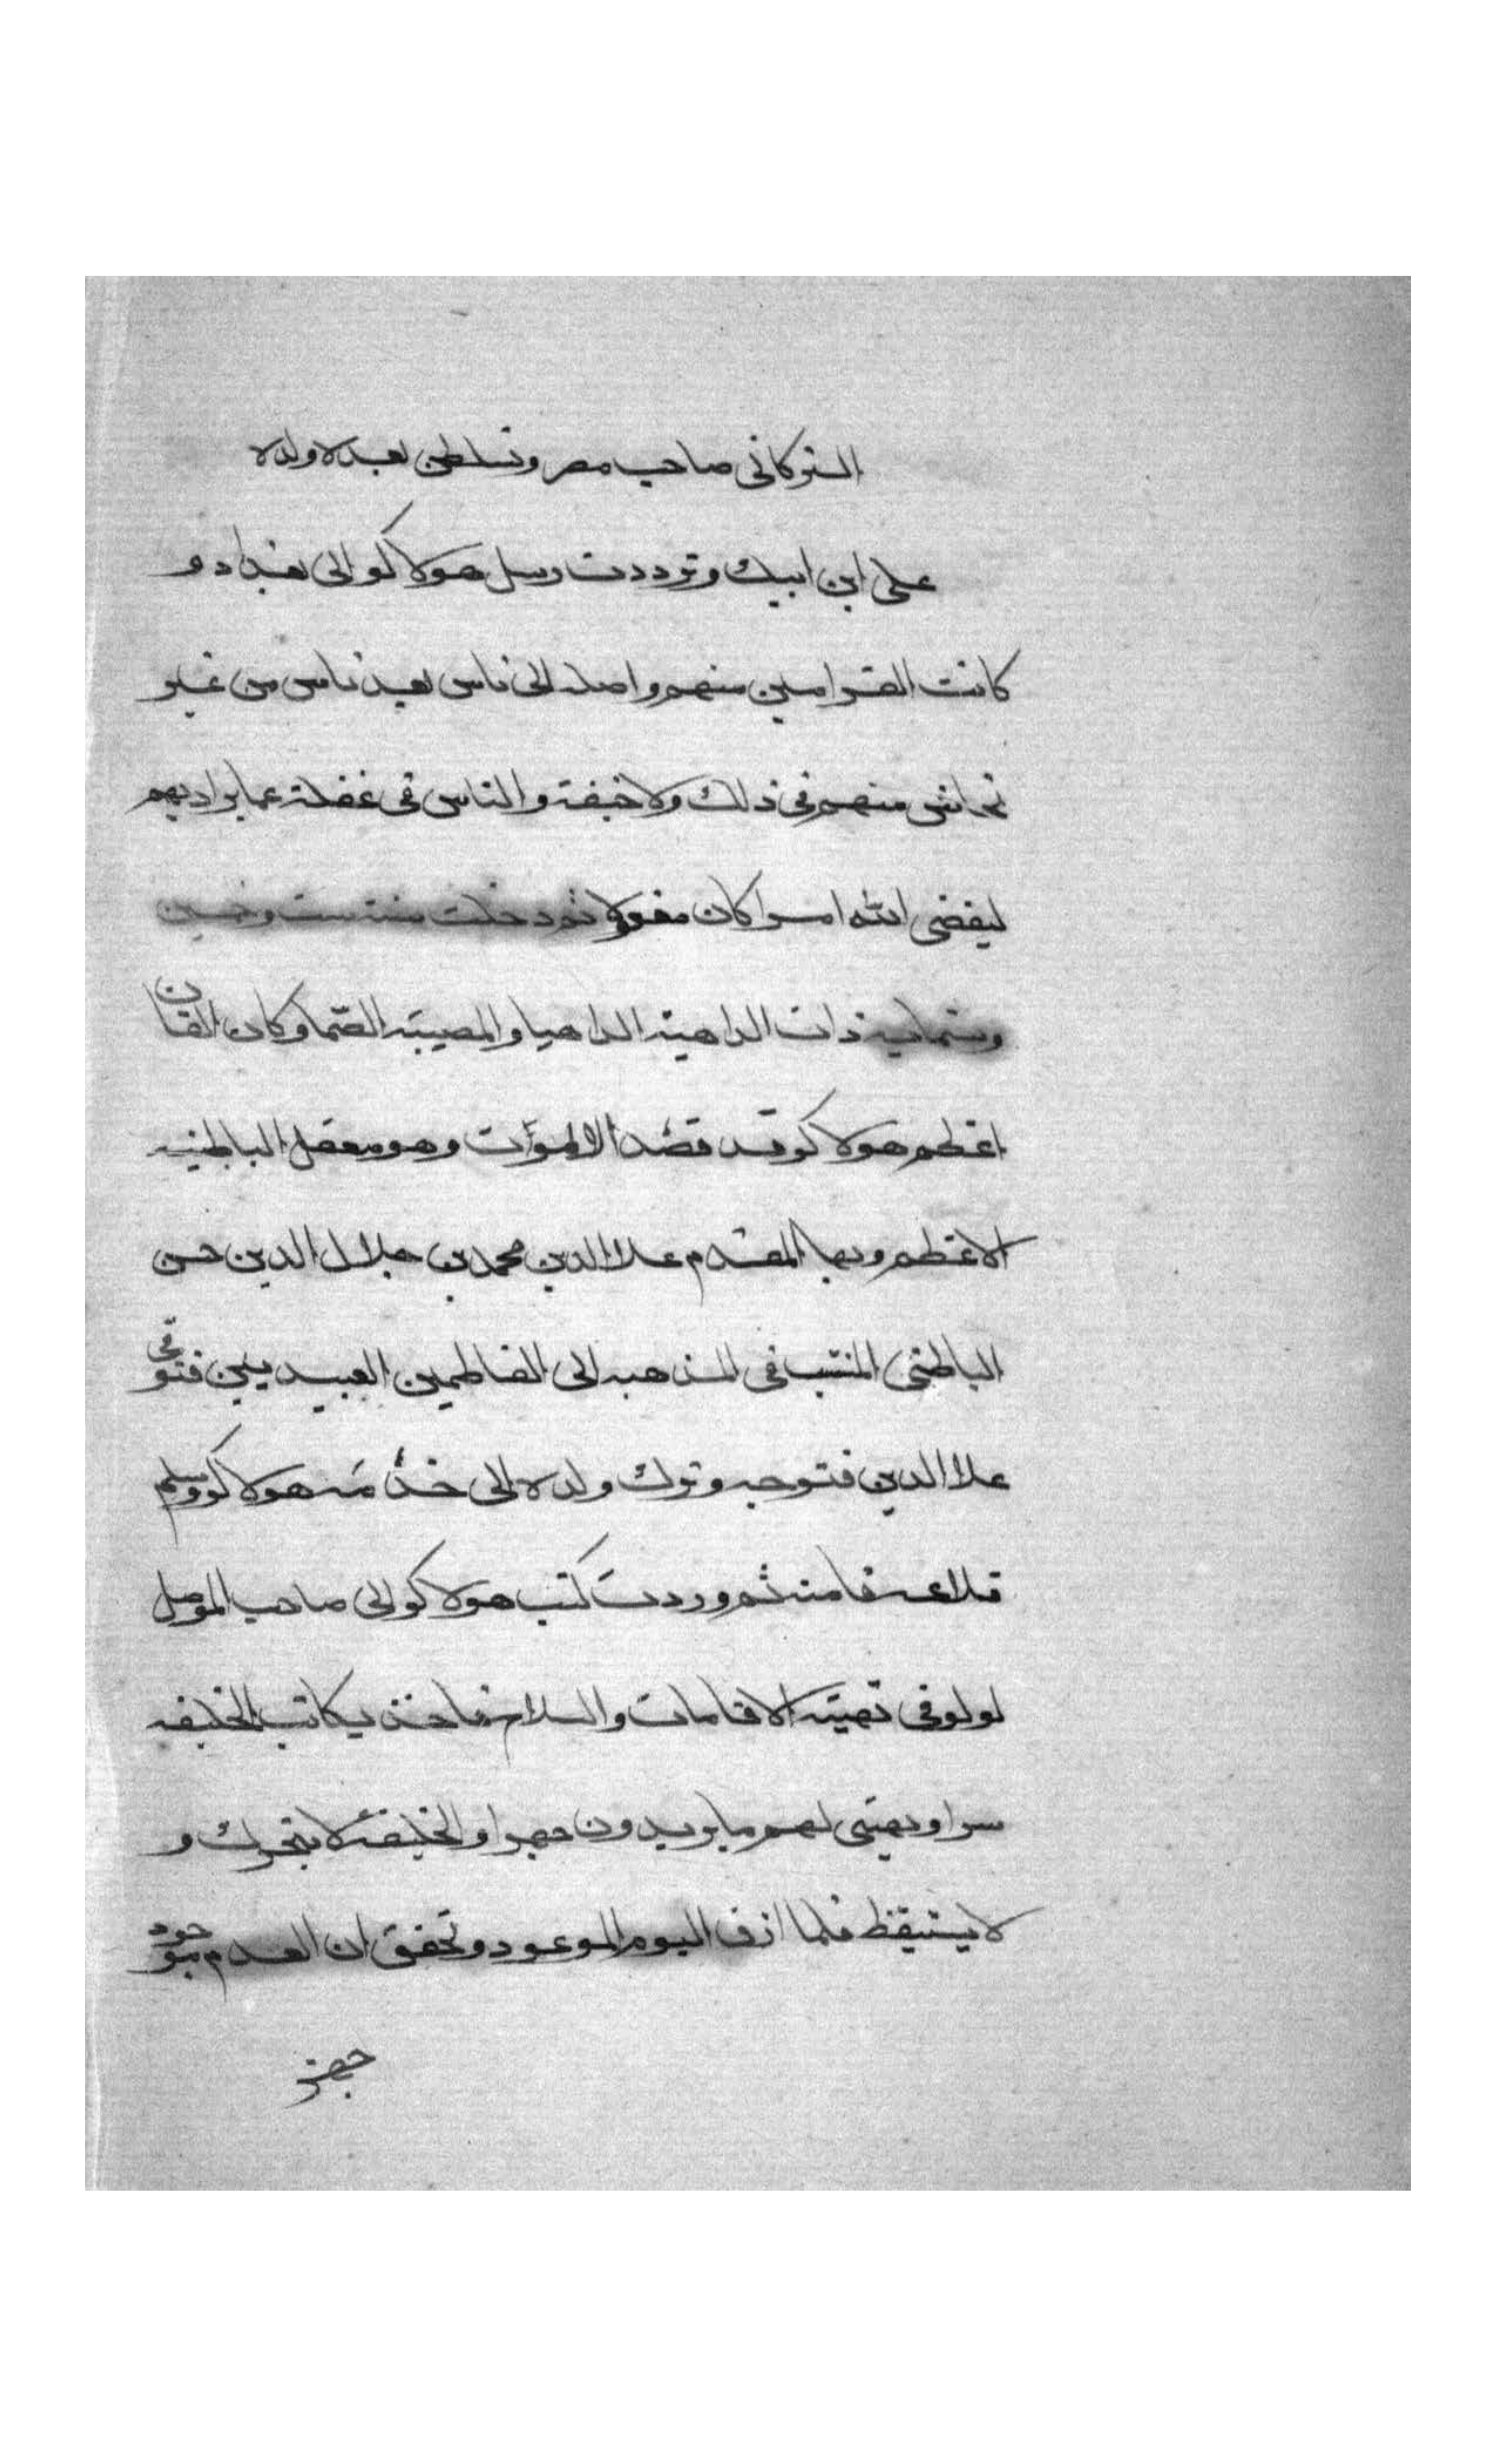 التركمانى صاحب مصر وتسلطن بعده ولده
على ابن ايبك وترددت رسل هولاكو الى بغداد و
كانت الفرامين منهم واصله الى ناس بعد ناس من غير
تحاش منهم فى ذلك ولا خيفة والناس فى غفلة عما يراد بهم
ليقضى الله امرا كان مفعولا ثم دخلت سنة ست وخمسين
وستمايه ذات الداهية الدهيا والمصيبة الصما وكان القان
اعظم هولاكو قد قصد الالموت وهو معقل الباطنيه
الاعظم وبها المقدم علا الدين محمد بن جلال الدين حسن
الباطنى المنتسب فى المذهب الى الفاطمين العبيديين فتوفى
علا الدين فتوجه وترك ولده الى خدمة هولاكو وسلم
قلاعه فامنه ثم وردت كتب هولاكو الى صاحب الموصل
لولو فى تهيئة الاقامات والسلاح فاخذ يكاتب الخليفه
سرا ويهيئ لهم ما يريدون جهرا والخليفة لا يتحرك و
لا يستيقظ فلما ازف اليوم الموعود وتحقق ان العدم موجود
جهز